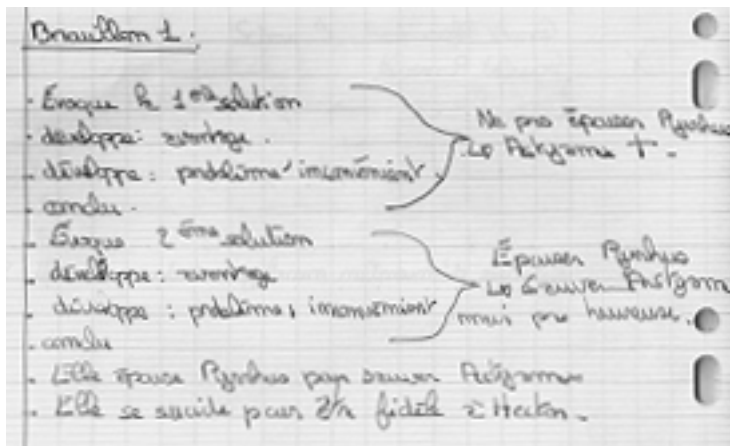 Brouillon 1.
- Évoque la 1ère solution
- développe : avantage.
- développe : problème / inconvénient
- conclu.
Ne pas épouser Pyrrhus
↳ Astyanax †.
- Évoque 2ème solution
- développe : avantage
- développe : problème, inconvénient
- conclu
Épouser Pyrrhus
↳ Sauver Astyan
mais pas heureuse.
- Elle épouse Pyrrhus pour sauver Astyanax
- Elle se suicide pour être fidèle à Hector.